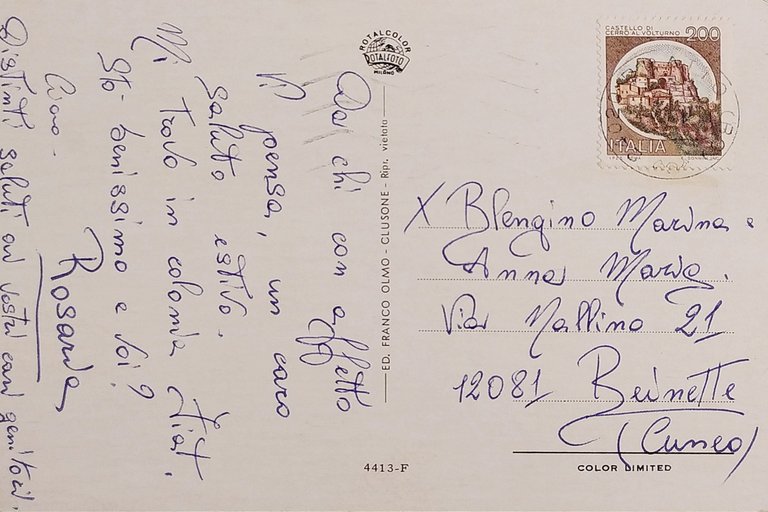 Da chi con affetto
Vi pensa, un caro
saluto estivo.
Mi trovo in colonia Fiat.
Sto benissimo e voi?
Ciao.
Rosaria
Distinti saluti ai vostri cari genitori.
ROTALCOLOR
ROTALFOTO
MILANO
ED. FRANCO OLMO - CLUSONE - Ripr. vietata
CASTELLO DI
CERRO AL VOLTURNO
200
ITALIA
X Blengino Marina e
Anna Maria.
Via Mallino 21
12081 Beinette
(Cuneo)
4413-F
COLOR LIMITED